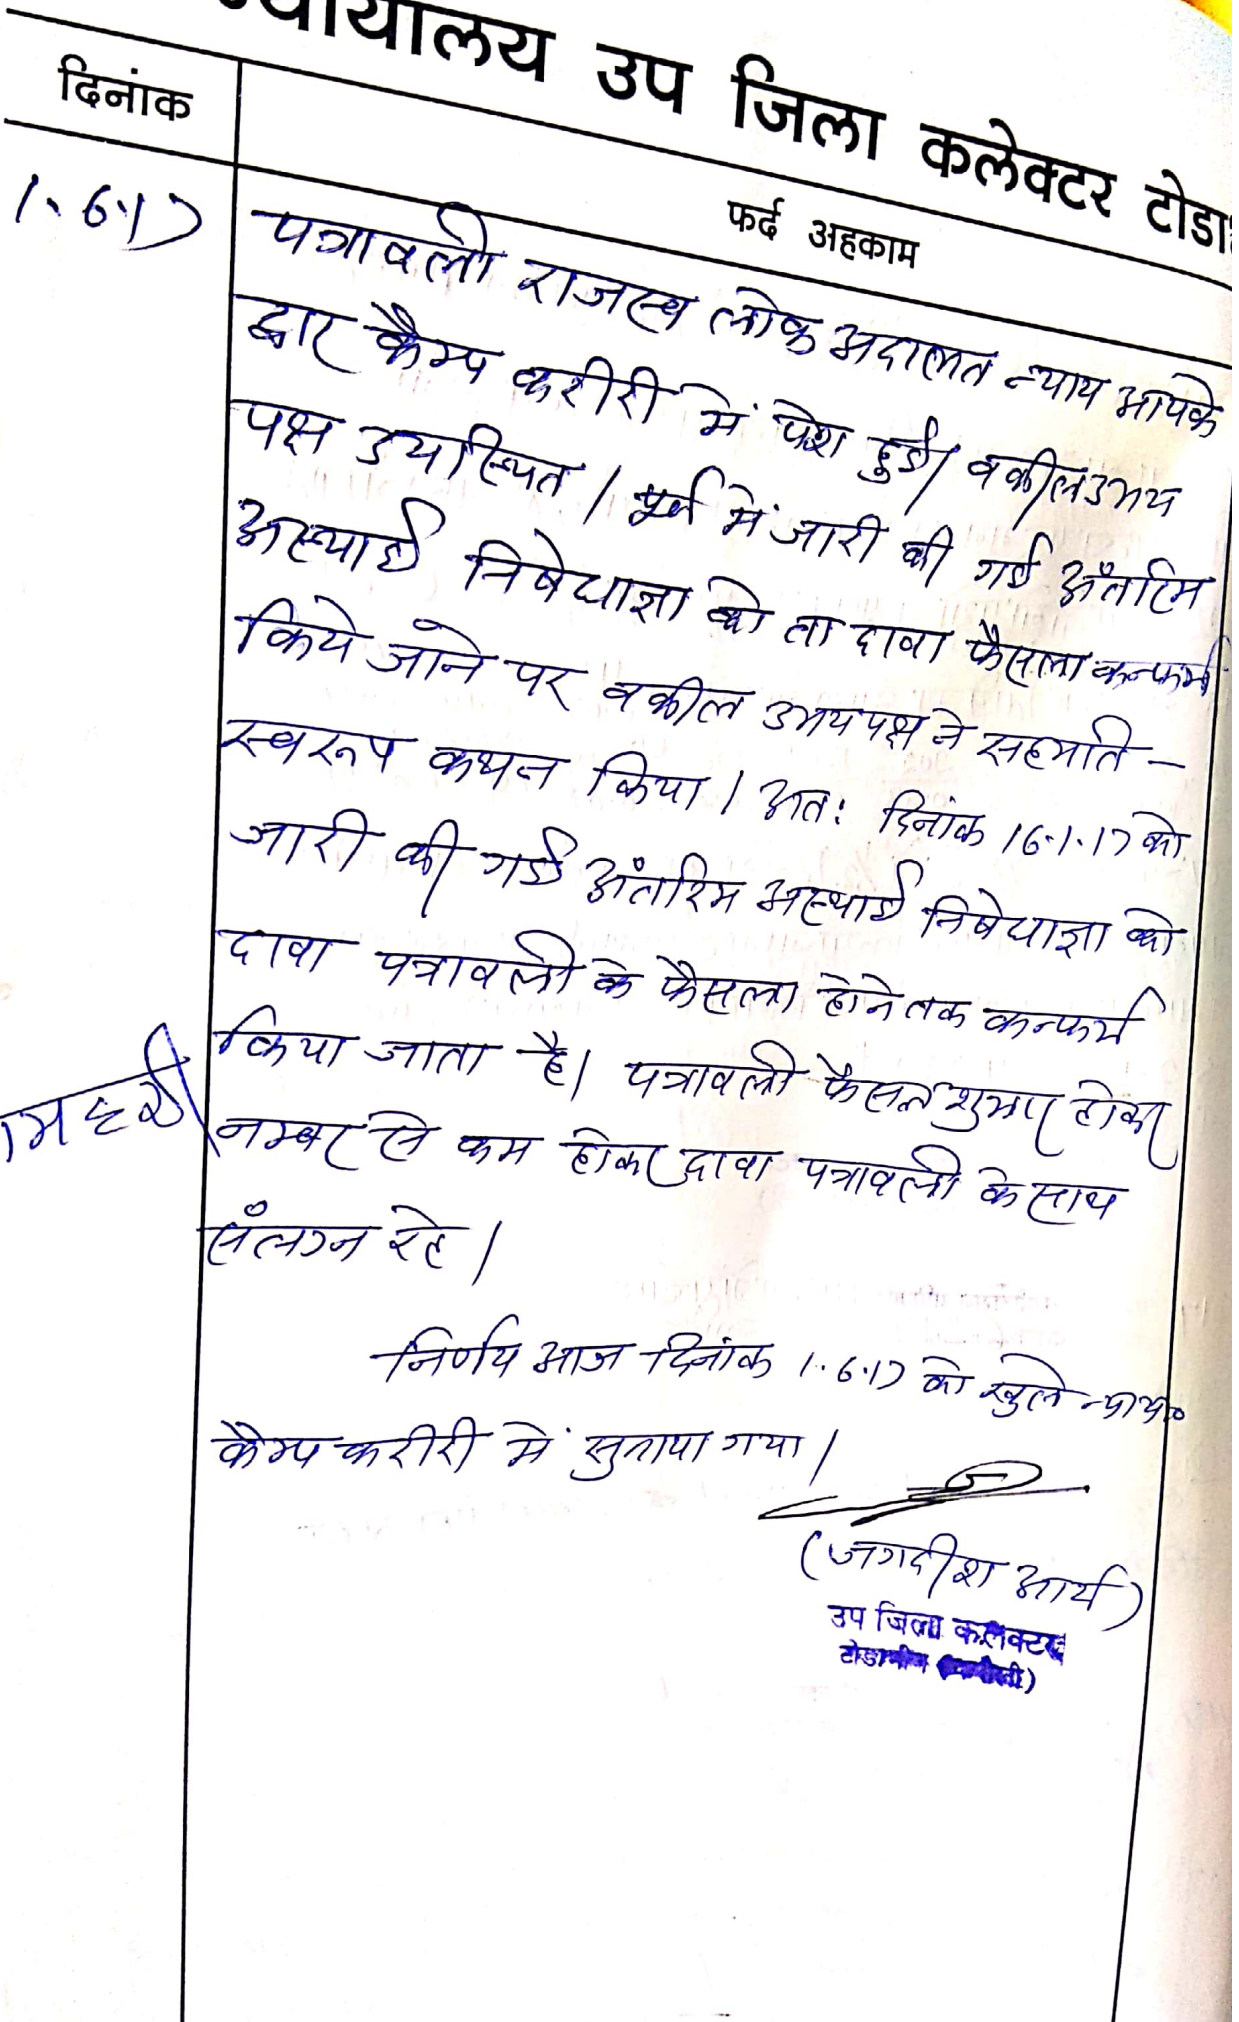 न्यायालय उप जिला कलेक्टर टोडा
दिनांक
फर्द अहकाम
1.6.17
पत्रावली राजस्व लोक अदालत न्याय आपके
द्वार कैम्प करीरी में पेश हुई। वकील उभय
पक्ष उपस्थित। पूर्व में जारी की गई अंतरिम
अस्थाई निषेधाज्ञा को ता दावा फैसला कन्फर्म
किये जाने पर वकील उभयपक्ष ने सहमति -
स्वरूप कथन किया। अत: दिनांक 16.1.17 को
जारी की गई अंतरिम अस्थाई निषेधाज्ञा को
दावा पत्रावली के फैसला होने तक कन्फर्म
किया जाता है। पत्रावली फैसल शुमार होकर
नम्बर से कम होकर दावा पत्रावली के साथ
संलग्न रहे।
निर्णय आज दिनांक 1.6.17 को खुले न्याया०
कैम्प करीरी में सुनाया गया।
(जगदीश आर्य)
उप जिला कलेक्टर
टोडाभीम (करौली)